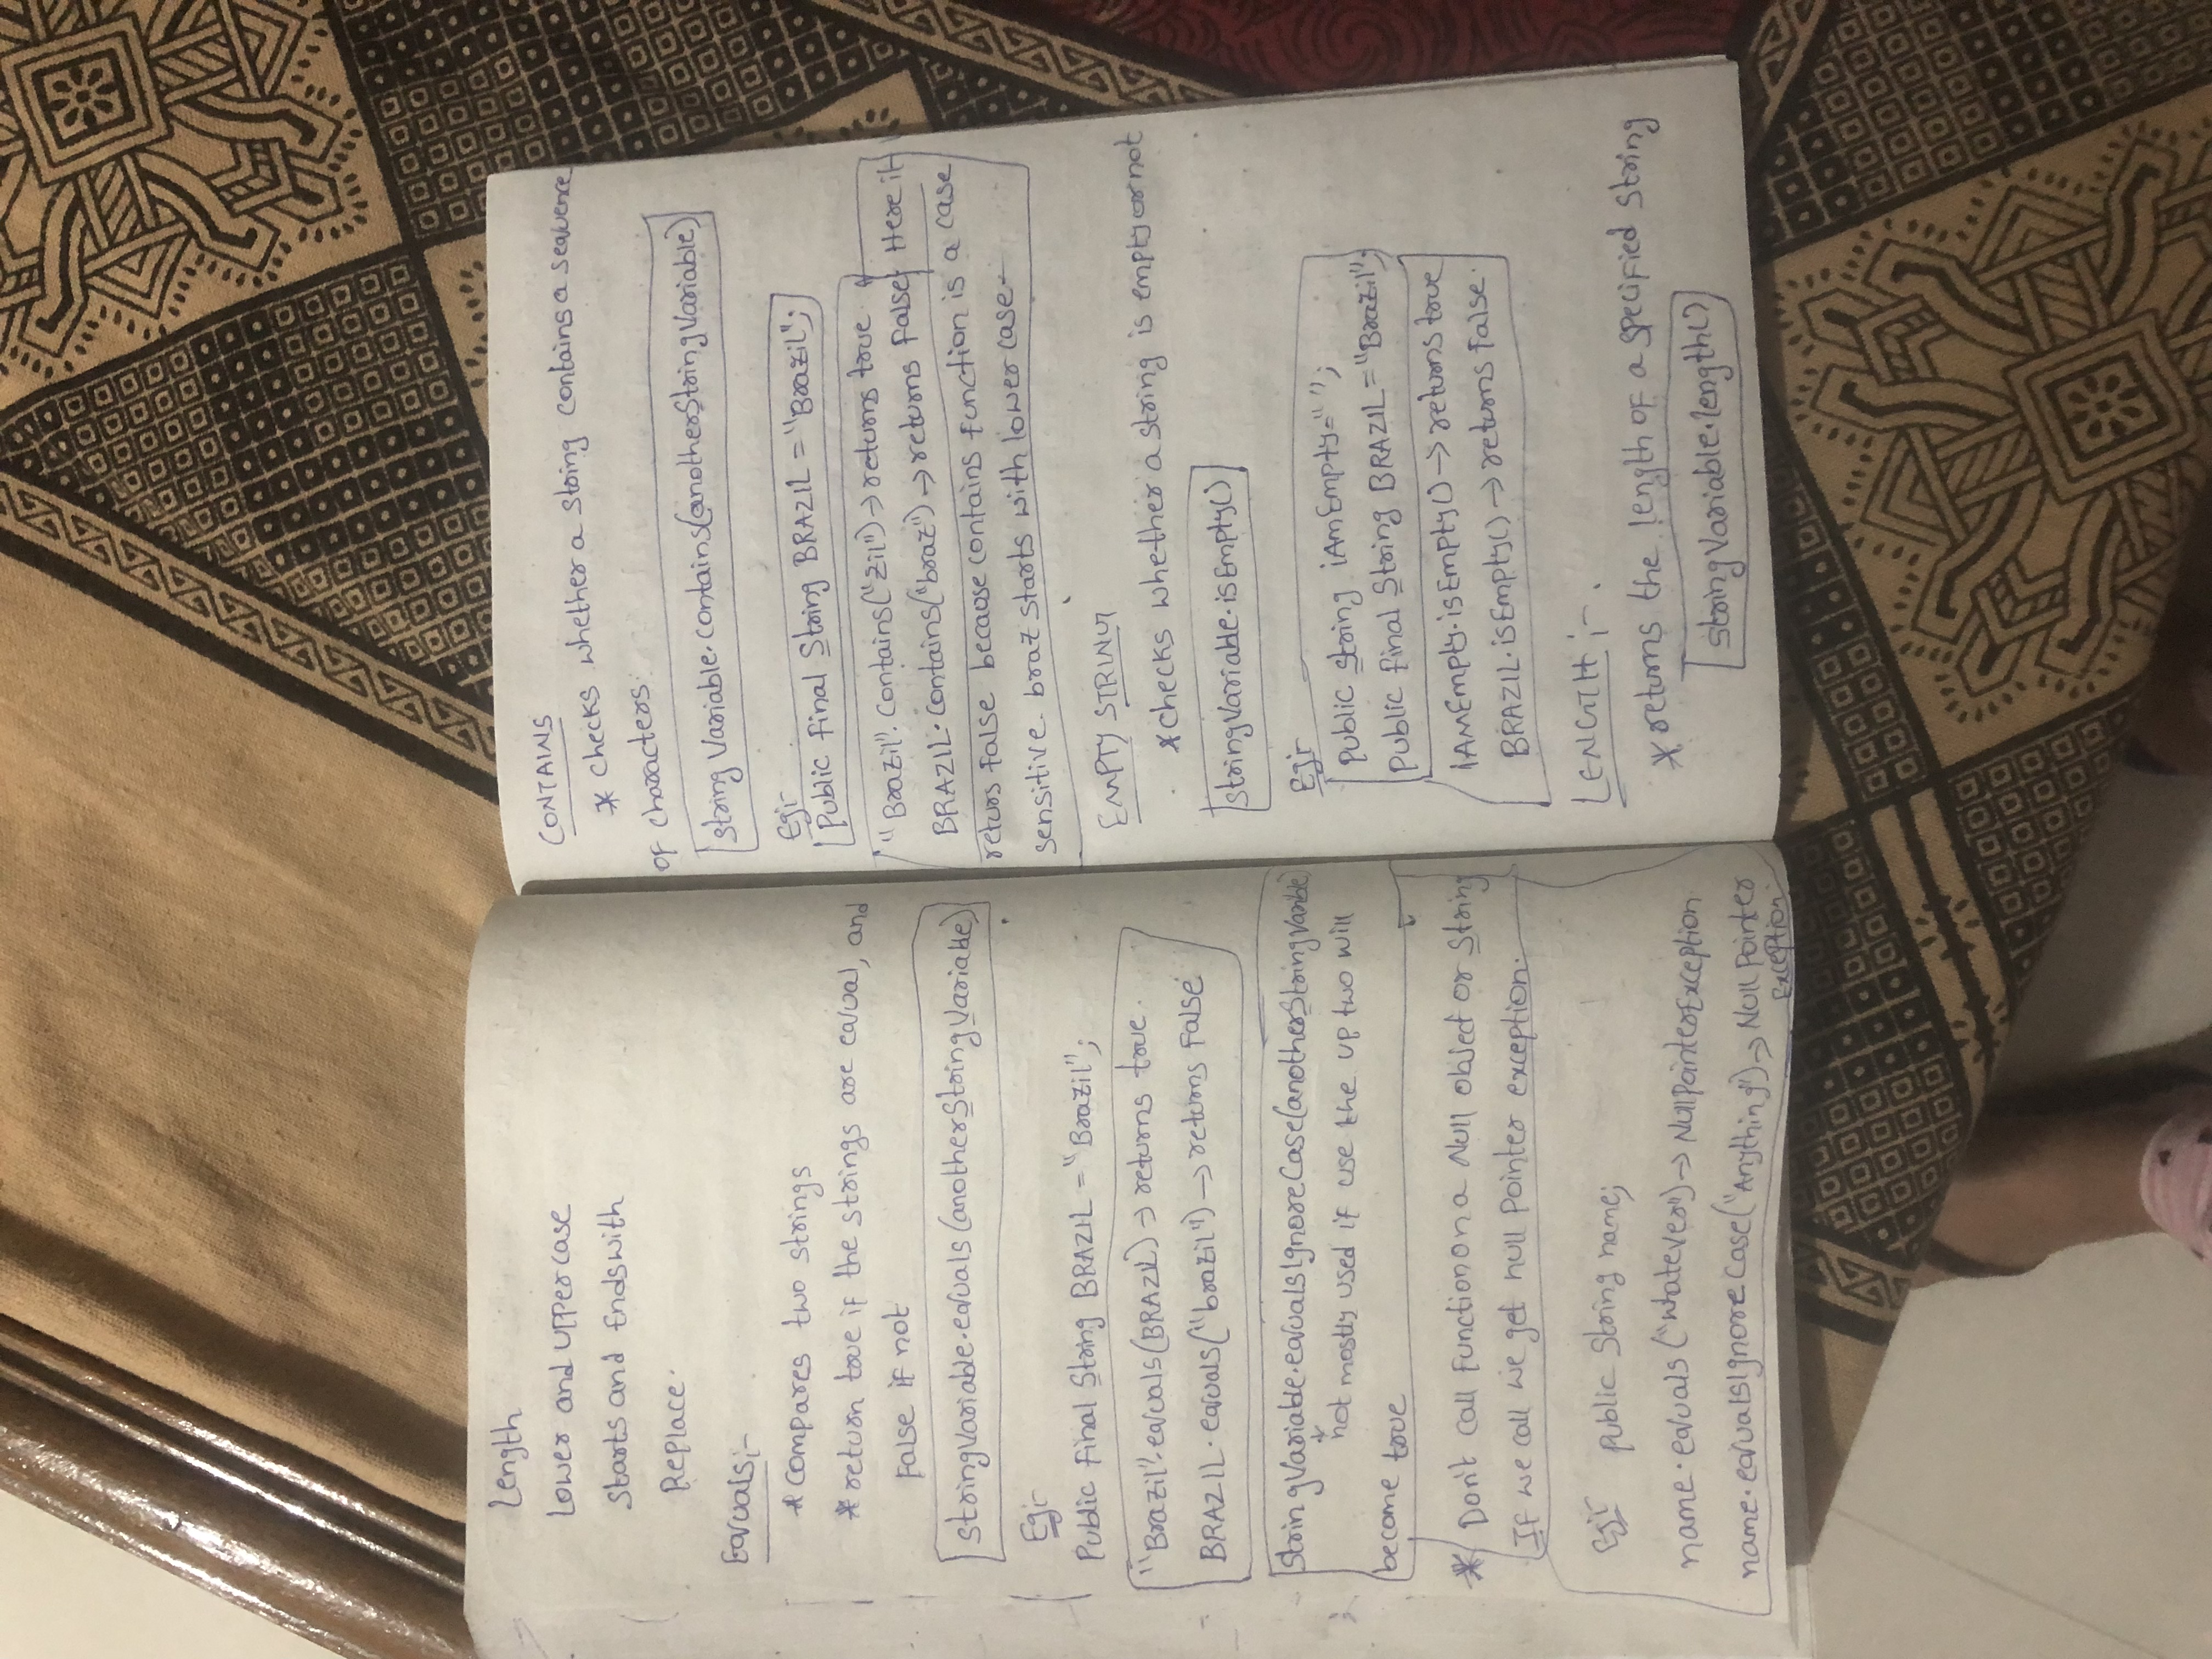 Length
Lower and uppercase
Starts and Endswith
Replace.
Equals:-
* compares two strings
* return true if the strings are equal, and
False if not
stringVariable.equals(anotherStringVariable)
Eg:-
Public final String BRAZIL = "Brazil";
"Brazil".equals(BRAZIL) → returns true.
BRAZIL.equals("brazil") → returns False
StringVariable.equalsIgnoreCase(anotherStringVarible)
not mostly used if use the up two will
become true
* Don't call Function on a Null object or String
If we call we get null pointer exception.
Eg:- public String name;
name.equals("whatever") → NullPointerException
name.equalsIgnoreCase("Anything") → Null Pointer
Exception.
CONTAINS
* checks whether a string contains a sequence
of characters.
string Variable.contains(anotherStringVariable)
Eg:-
Public final String BRAZIL = "Brazil";
"Brazil".contains("zil") → returns true
BRAZIL.contains("braz") → returns False Here it
returs False because contains function is a case
sensitive. braz starts with lower case-
EMPTY STRING
* checks whether a string is empty or not
stringVariable.isEmpty()
Eg:-
Public String iAmEmpty="";
Public final String BRAZIL = "Brazil";
iAMEmpty.isEmpty() → returns true
BRAZIL.isEmpty() → returns False.
LENGTH :-.
* returns the length of a specified string
stringVariable.length()